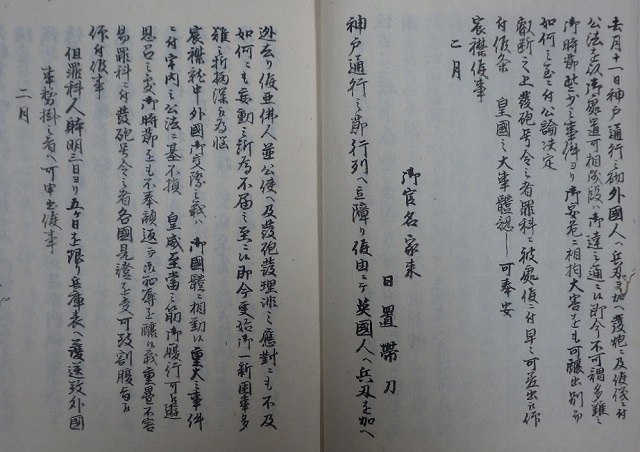 去月十一日神戸通行之砌外國人へ兵刃を加へ發炮ニ及候儀ニ付
公法を以御處置可相成段ハ御達之通ニ候即今不可謂多難之
御時節些少之事件ヨリ御安危ニ相拘大害をも可醸出別而
如何之至ニ付公論決定
叡斷之上發砲号令之者罪科ニ被處候ニ付早々可差出旨被作
付候条 皇國之大事體認し可奉安
宸襟候事
二月
御官名家来
日置帯刀
神戸通行之節行列へ立障り候由ニテ英國人へ兵刃を加へ
逃去り候亜佛人並公使へ及發砲發理非之應對ニも不及
如何ニも妄動之所為不届之至ニ候即今更始御一新国事多
難之折柄深被為悩
宸襟就中外國御交際之義ハ御國體ニ相動候重大之事件
ニ付宇内之公法ニ基不損 皇威至當之筋御履行可被遊
思召之處御時節をも不奉顧返而御恥辱を醸候義重畳不容
易罪科ニ付發砲号令之者各國見證を受可致割腹旨被
作付候事
但罪科人儕明三日ヨリ五ケ日を限り兵庫表へ護送致外國
事務掛之者へ可申出候事
二月